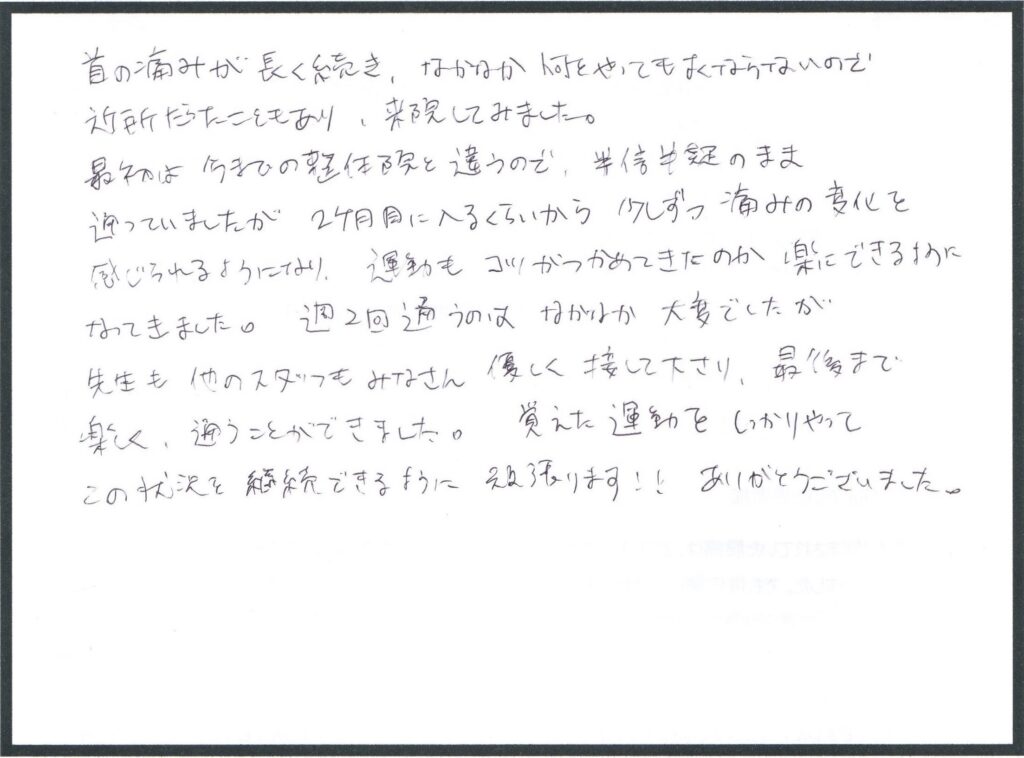 首の痛みが長く続き、なかなか何をやってもよくならないので
近所だったこともあり、来院してみました。
最初は今までの整体院と違うので、半信半疑のまま
通っていましたが 2ヶ月目に入るくらいから 少しずつ 痛みの変化を
感じられるようになり、運動も コツがつかめてきたのか 楽にできるように
なってきました。 週2回通うのは なかなか 大変でしたが
先生も 他のスタッフもみなさん 優しく 接して下さり、最後まで
楽しく、通うことができました。 覚えた運動を しっかりやって
この状況を 継続できるように 頑張ります!! ありがとうございました。